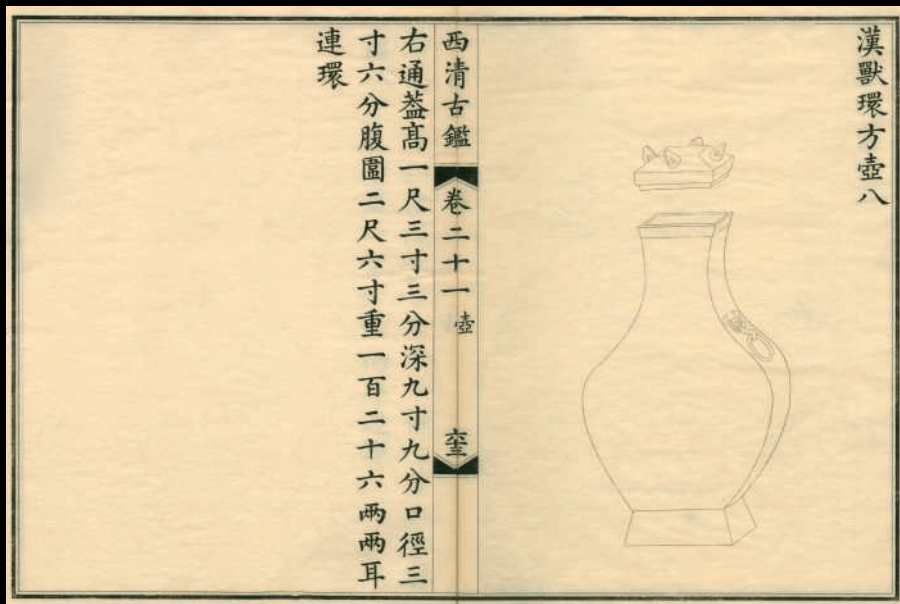 漢獸環方壺八
西清古鑑 卷二十一 壺 六十三
右通蓋髙一尺三寸三分深九寸九分口徑三
寸六分腹圍二尺六寸重一百二十六兩兩耳
連環